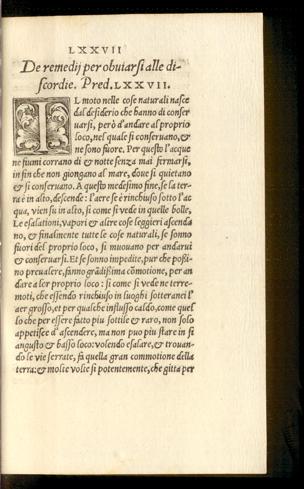 LXXVII
De remedij per obuiarsi alle di-
scordie. Pred. LXXVII.
IL moto nelle cose naturali nasce
dal desiderio che hanno di conser
uarsi, però d'andare al proprio
loco, nel quale si conseruano, &
ne sono fuore. Per questo l'acque
ne fiumi corrano di & notte senza mai fermarsi,
in fin che non giongano al mare, doue si quietano
& si conseruano. A questo medesimo fine, se la ter-
ra è in alto, descende: l'aere se è rinchiuso sotto l'ac
qua, vien su in alto, si come si vede in quelle bolle,
Le esalationi, vapori & altre cose leggieri ascenda
no, & finalmente tutte le cose naturali, se sonno
fuori del proprio loco, si muouano per andarui
& conseruarsi. Et se sonno impedite, pur che possi-
no preualere, fanno grãdissima cõmotione, per an
dare a lor proprio loco: si come si vede ne terre-
moti, che essendo rinchiuso in luoghi sotteranei l'
aer grosso, et per qualche influsso caldo, come quel
lo che per essere fatto piu sottile & raro, non solo
appetisce d'ascendere, ma non puo piu stare in si
angusto & basso loco: volendo esalare, & trouan-
do le vie serrate, fa quella gran commotione della
terra: & molte volte si potentemente, che gitta per